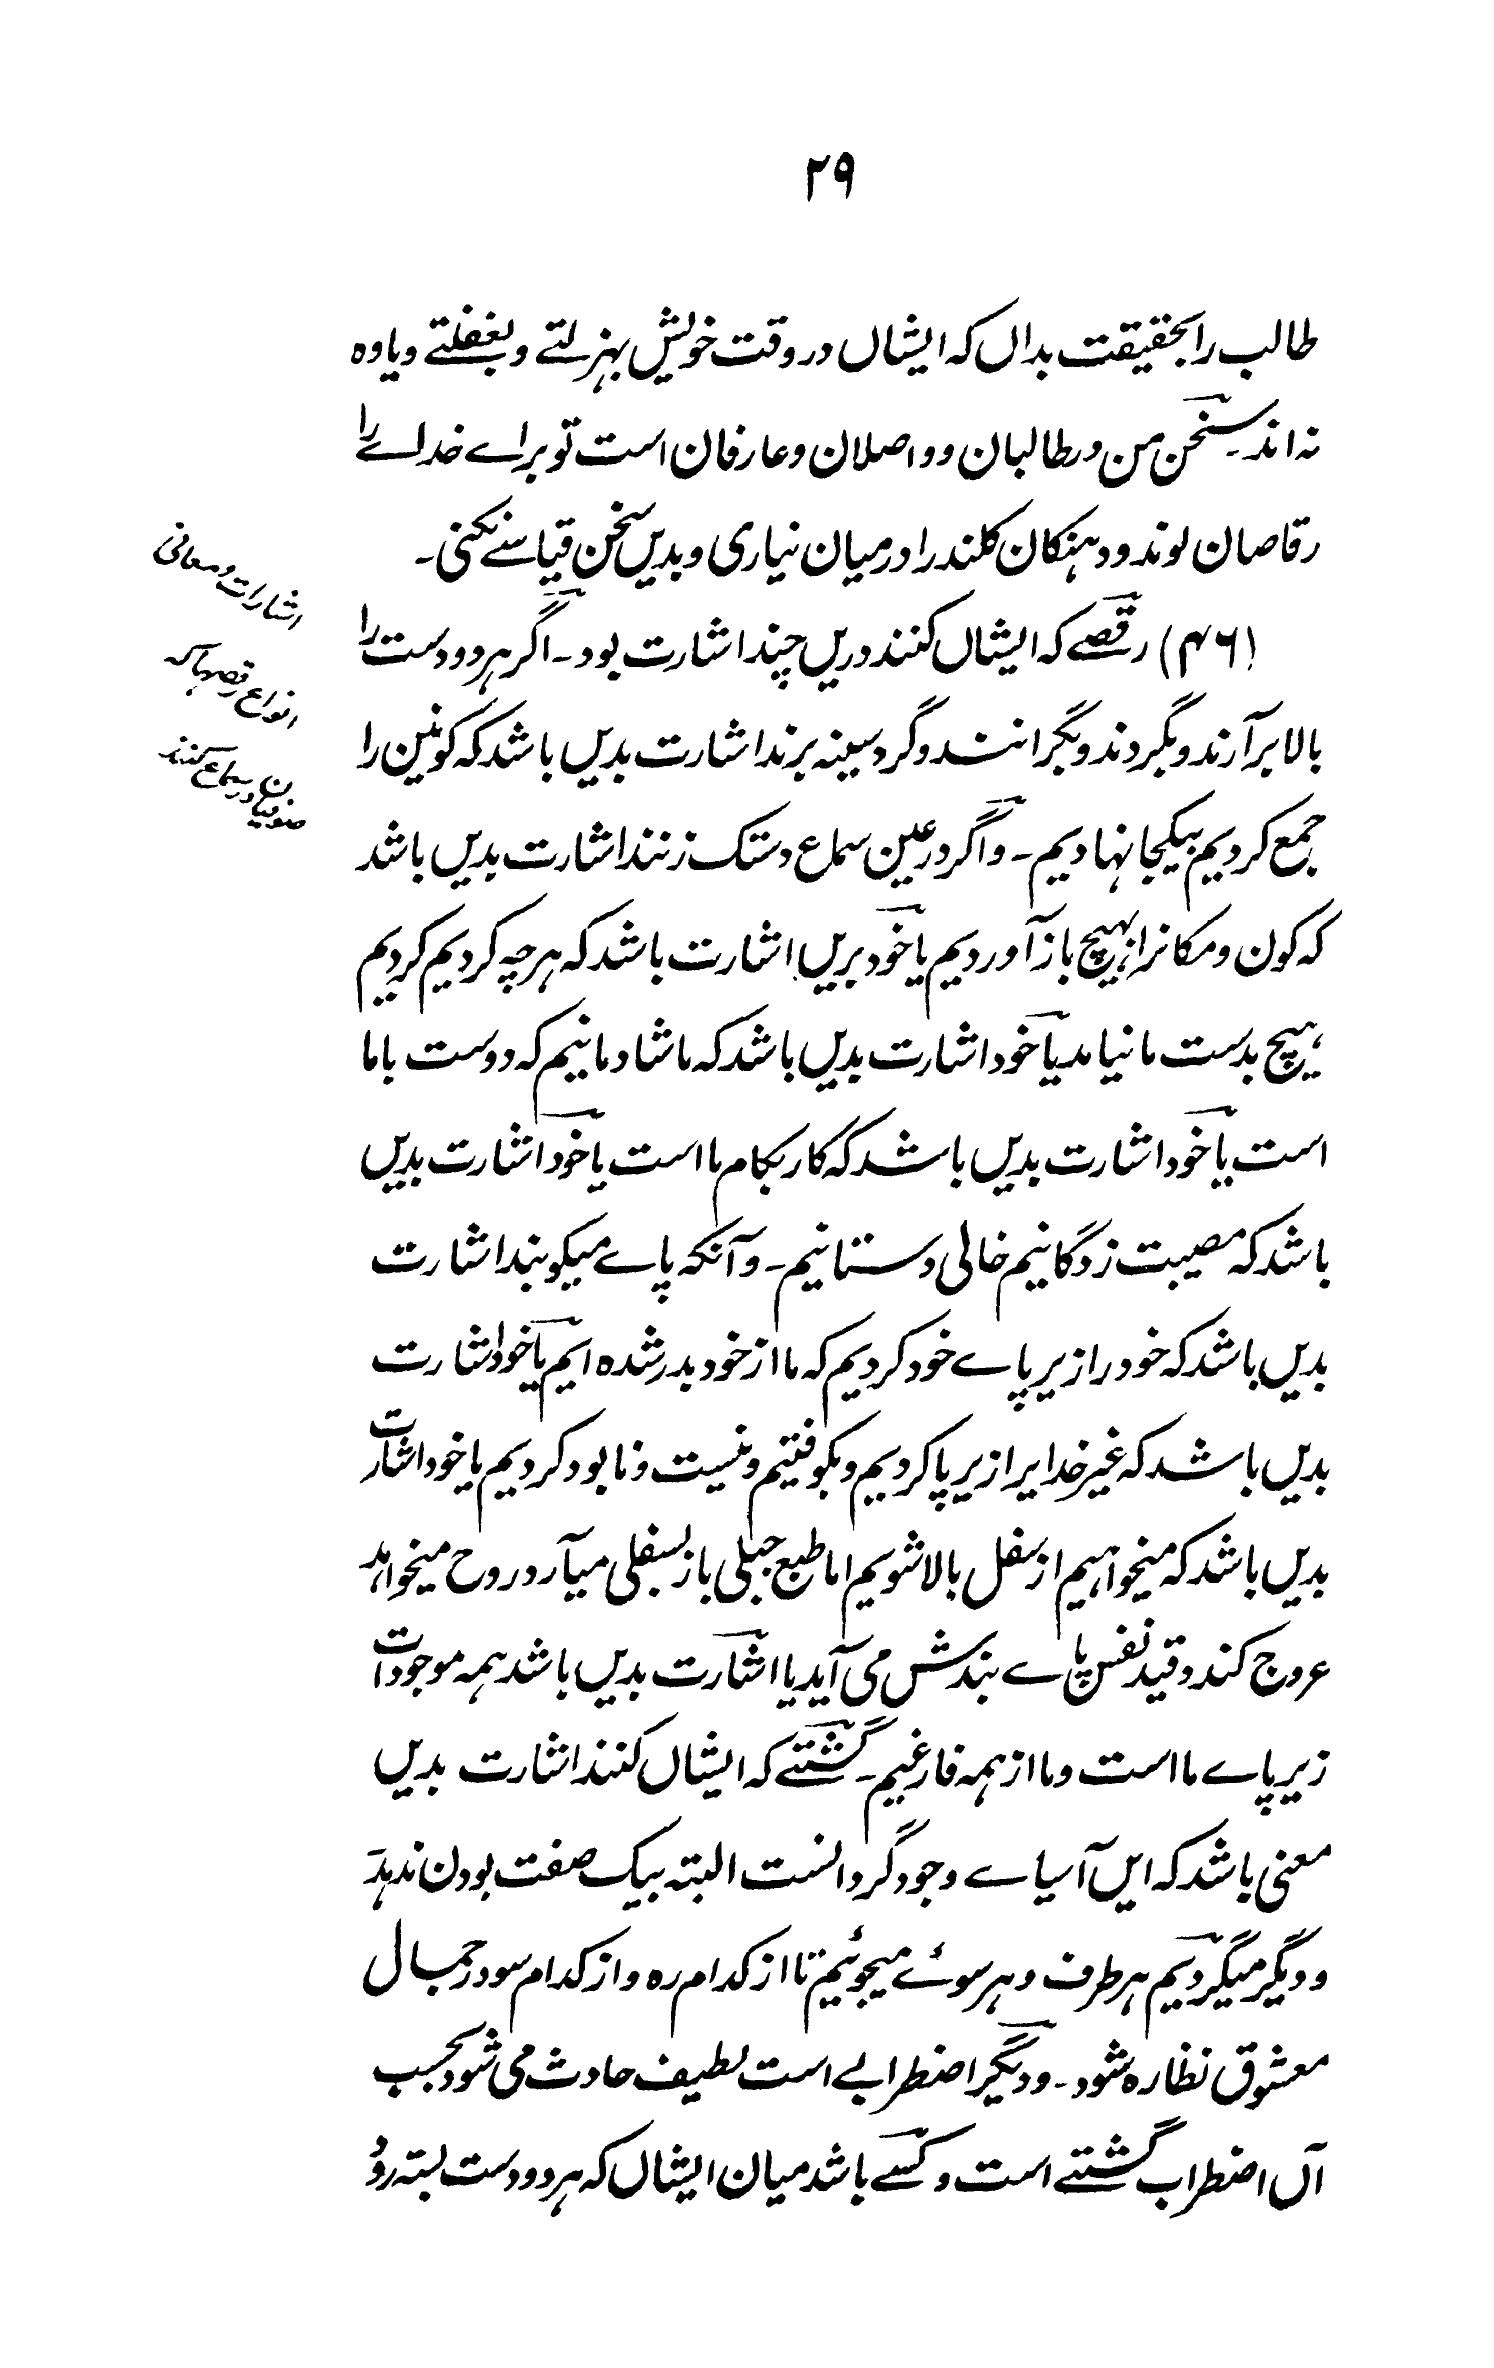 ۲۹
طالب را بحقیقت بداں کہ ایشاں در وقت خویش بہزلتے و بغفلتے و یاوہ
نہ اند۔ سخن من در طالبان و واصلان و عارفان است تو برائے خدائے را
رقاصان لوند و دہنکان کلند را درمیان نیاری و بدیں سخن قیاسے نکنی۔
(۴۶) رقصے کہ ایشاں کنند دریں چند اشارت بود۔ اگر ہر دو دست را
بالا برآرند و بگردند و بگرانند و گرد سینہ برند اشارت بدیں باشد کہ کونین را
جمع کردیم بیکجا نہادیم۔ و اگر در عین سماع دستک زنند اشارت بدیں باشد
کہ کون و مکانرا از ہیچ باز آوردیم یا خود بریں اشارت باشد کہ ہرچہ کردیم کردیم
ہیچ بدست ما نیامد یا خود اشارت بدیں باشد کہ ما شادمانیم کہ دوست باما
است یا خود اشارت بدیں باشد کہ کار بکام ما است یا خود اشارت بدیں
باشد کہ مصیبت زدگانیم خالی دستانیم۔ و آنکہ پاے میکوبند اشارت
بدیں باشد کہ خود را زیر پاے خود کردیم کہ ما از خود بدر شدہ ایم یا خود اشارت
بدیں باشد کہ غیر خدایرا زیر پا کردیم و بکوفتیم و نیست و نابود کردیم یا خود اشارت
بدیں باشد کہ میخواہیم از سفل بالا شویم اما طبع جبلی باز بسفلی میآرد و روح میخواہد
عروج کند و قید نفس پاے بندش می آید یا اشارت بدیں باشد ہمہ موجودات
زیر پاے ما است و ما از ہمہ فارغیم۔ گشتے کہ ایشاں کنند اشارت بدیں
معنی باشد کہ ایں آسیاے وجود گردانست البتہ بیک صفت بودن ندہد
و دیگر میگردیم ہر طرف و ہر سوئے میجوئیم تا از کدام رہ و از کدام سو در جمال
معشوق نظارہ شود۔ و دیگر اضطرابے است لطیف حادث می شود بحسب
آں اضطراب گشتے است و کسے باشد میان ایشاں کہ ہر دو دست بستہ رو
اشارات و معانی
انواع رقصہا کہ
صوفیان در سماع کنند